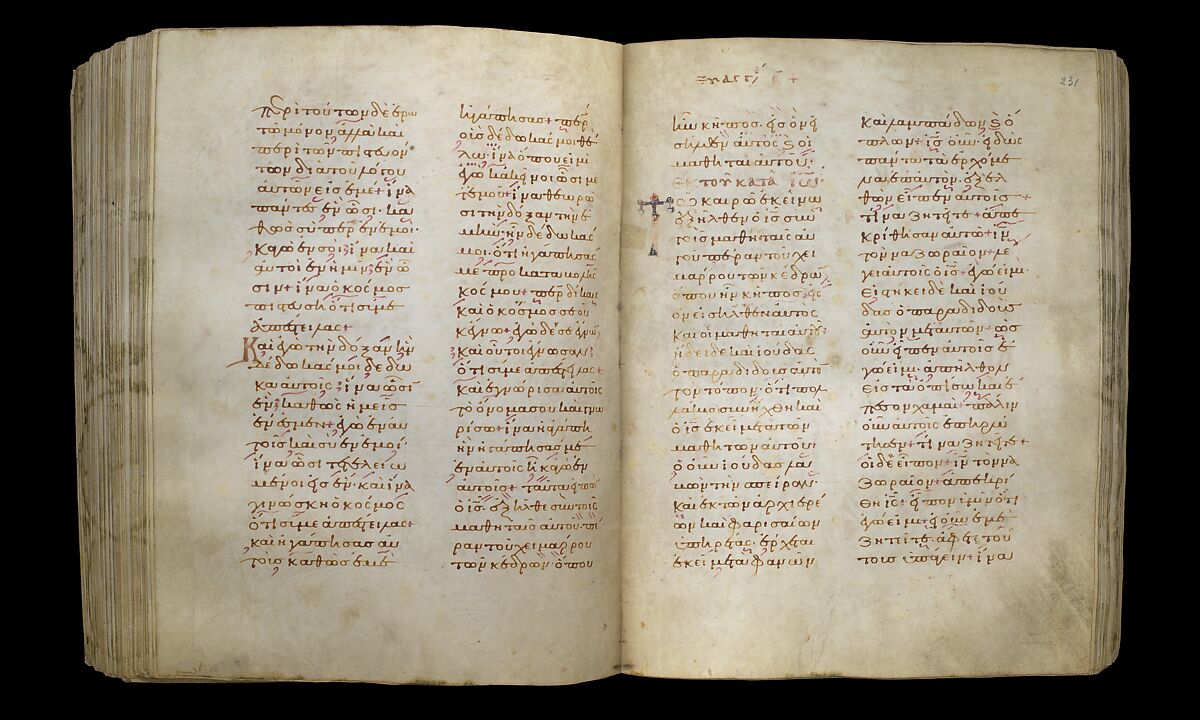 Περὶ τούτων δὲ ἐρω
τῶ μόνον ἀλλὰ καὶ
περὶ τῶν πιστευόν
των διὰ τοῦ λόγου
αὐτῶν εἰς ἐμέ + ἵνα
πάντες ἓν ὦσι · κα
θὼς σὺ περ ἐν ἐμοί ·
κἀγὼ ἐν σοί · ἵνα καὶ
αὐτοὶ ἐν ἡμῖν ἓν ὦ
σιν + ἵνα ὁ κόσμος
πιστεύση ὅτι σύ με
ἀπέστειλας +
Καὶ ἐγὼ τὴν δόξαν ἣν
δέδωκάς μοι δέδω
κα αὐτοῖς · ἵνα ὦσι
ἓν καθὼς ἡμεῖς
ἕν ἐσμεν + ἐγὼ ἐν αυ
τοῖς καὶ σὺ ἐν ἐμοί ·
ἵνα ὦσι τετελειω
μένοι εἰς ἕν · καὶ ἵνα
γινώσκη ὁ κόσμος
ὅτι σύ με ἀπέστειλας +
καὶ ἠγάπησας αὐ
τοὺς καθὼς ἐμὲ
ἠγάπησας + περ
οὓς δέδωκάς μοι θέ
λω · ἵνα ὅπου εἰμὶ
ἐγὼ κἀκεῖνοι ὦσι με
τ' ἐμοῦ + ἵνα θεωρῶ
σι τὴν δόξαν τὴν ἐ
μὴν ἣν δέδωκάς
μοι · ὅτι ἠγάπησάς
με πρὸ καταβολῆς
κόσμου + περ δίκαιε
καὶ ὁ κόσμος σε οὐ
κ ἔγνω + ἐγὼ δέ σε ἔγνων
καὶ οὗτοι ἔγνωσαν
ὅτι σύ με ἀπέστειλας +
καὶ ἐγνώρισα αὐτοῖς
τὸ ὄνομά σου καὶ γνω
ρίσω + ἵνα ἡ ἀγάπη
ἣν ἠγάπησάς με
ἐν αὐτοῖς ἦ κἀγὼ ἐν
αὐτοῖς + ταῦτα εἰπὼν
ὁ ις · ἐξῆλθε σὺν τοῖς
μαθηταῖς αὐτοῦ πέ
ραν τοῦ χειμάρρου
τῶν κέδρων · ὅπου
231
ἦν κῆπος · εἰς ὃν εἰ
σῆλθεν αὐτὸς καὶ οἱ
μαθηταὶ αὐτοῦ ·
ΕΚ ΤΟΥ ΚΑΤΑ ΙΩ
Τῶ καιρῶ ἐκείνω
ἐξῆλθεν ὁ ις σὺν
τοῖς μαθηταῖς αὐ
τοῦ πέραν τοῦ χει
μάρρου τῶν κέδρων
ὅπου ἦν κῆπος · εἰς
ὃν εἰσῆλθεν αὐτὸς
καὶ οἱ μαθηταὶ αὐτοῦ ·
ἤδει δὲ καὶ ἰούδας
ὁ παραδιδοὺς αὐτὸν
τὸν τόπον · ὅτι πολ
λάκις συνήχθη καὶ
ὁ ις ἐκεῖ μετὰ τῶν
μαθητῶν αὐτοῦ ·
ὁ οὖν ἰούδας λα
βὼν τὴν σπεῖραν ·
καὶ ἐκ τῶν ἀρχιερέ
ων καὶ φαρισαίων
ὑπηρέτας · ἔρχεται
ἐκεῖ μετὰ φανῶν
καὶ λαμπάδων καὶ ὅ
πλων + ις οὖν εἰδὼς
πάντα τὰ ἐρχόμε
να ἐπ' αὐτὸν · ἐξελ
θὼν εἶπεν αὐτοῖς +
τίνα ζητεῖτε + ἀπε
κρίθησαν αὐτῶ + ιν
τὸν ναζωραῖον + λέ
γει αὐτοῖς ὁ ις + ἐγώ εἰμι ·
Εἱστήκει δὲ καὶ ἰού
δας ὁ παραδιδοὺς
αὐτὸν μετ' αὐτῶν + ὡς
οὖν εἶπεν αὐτοῖς ἐ
γώ εἰμι · ἀπῆλθον
εἰς τὰ ὀπίσω καὶ ἔ
πεσον χαμαί · πάλιν
οὖν αὐτοὺς ἐπηρώ
τησεν + τίνα ζητεῖτε +
οἱ δὲ εἶπον + ιν τὸν να
ζωραῖον + ἀπεκρί
θη ις + εἶπον ὑμῖν ὅτι
ἐγώ εἰμι + εἰ οὖν ἐμὲ
ζητεῖτε · ἄφετε τού
τους ὑπάγειν + ἵνα